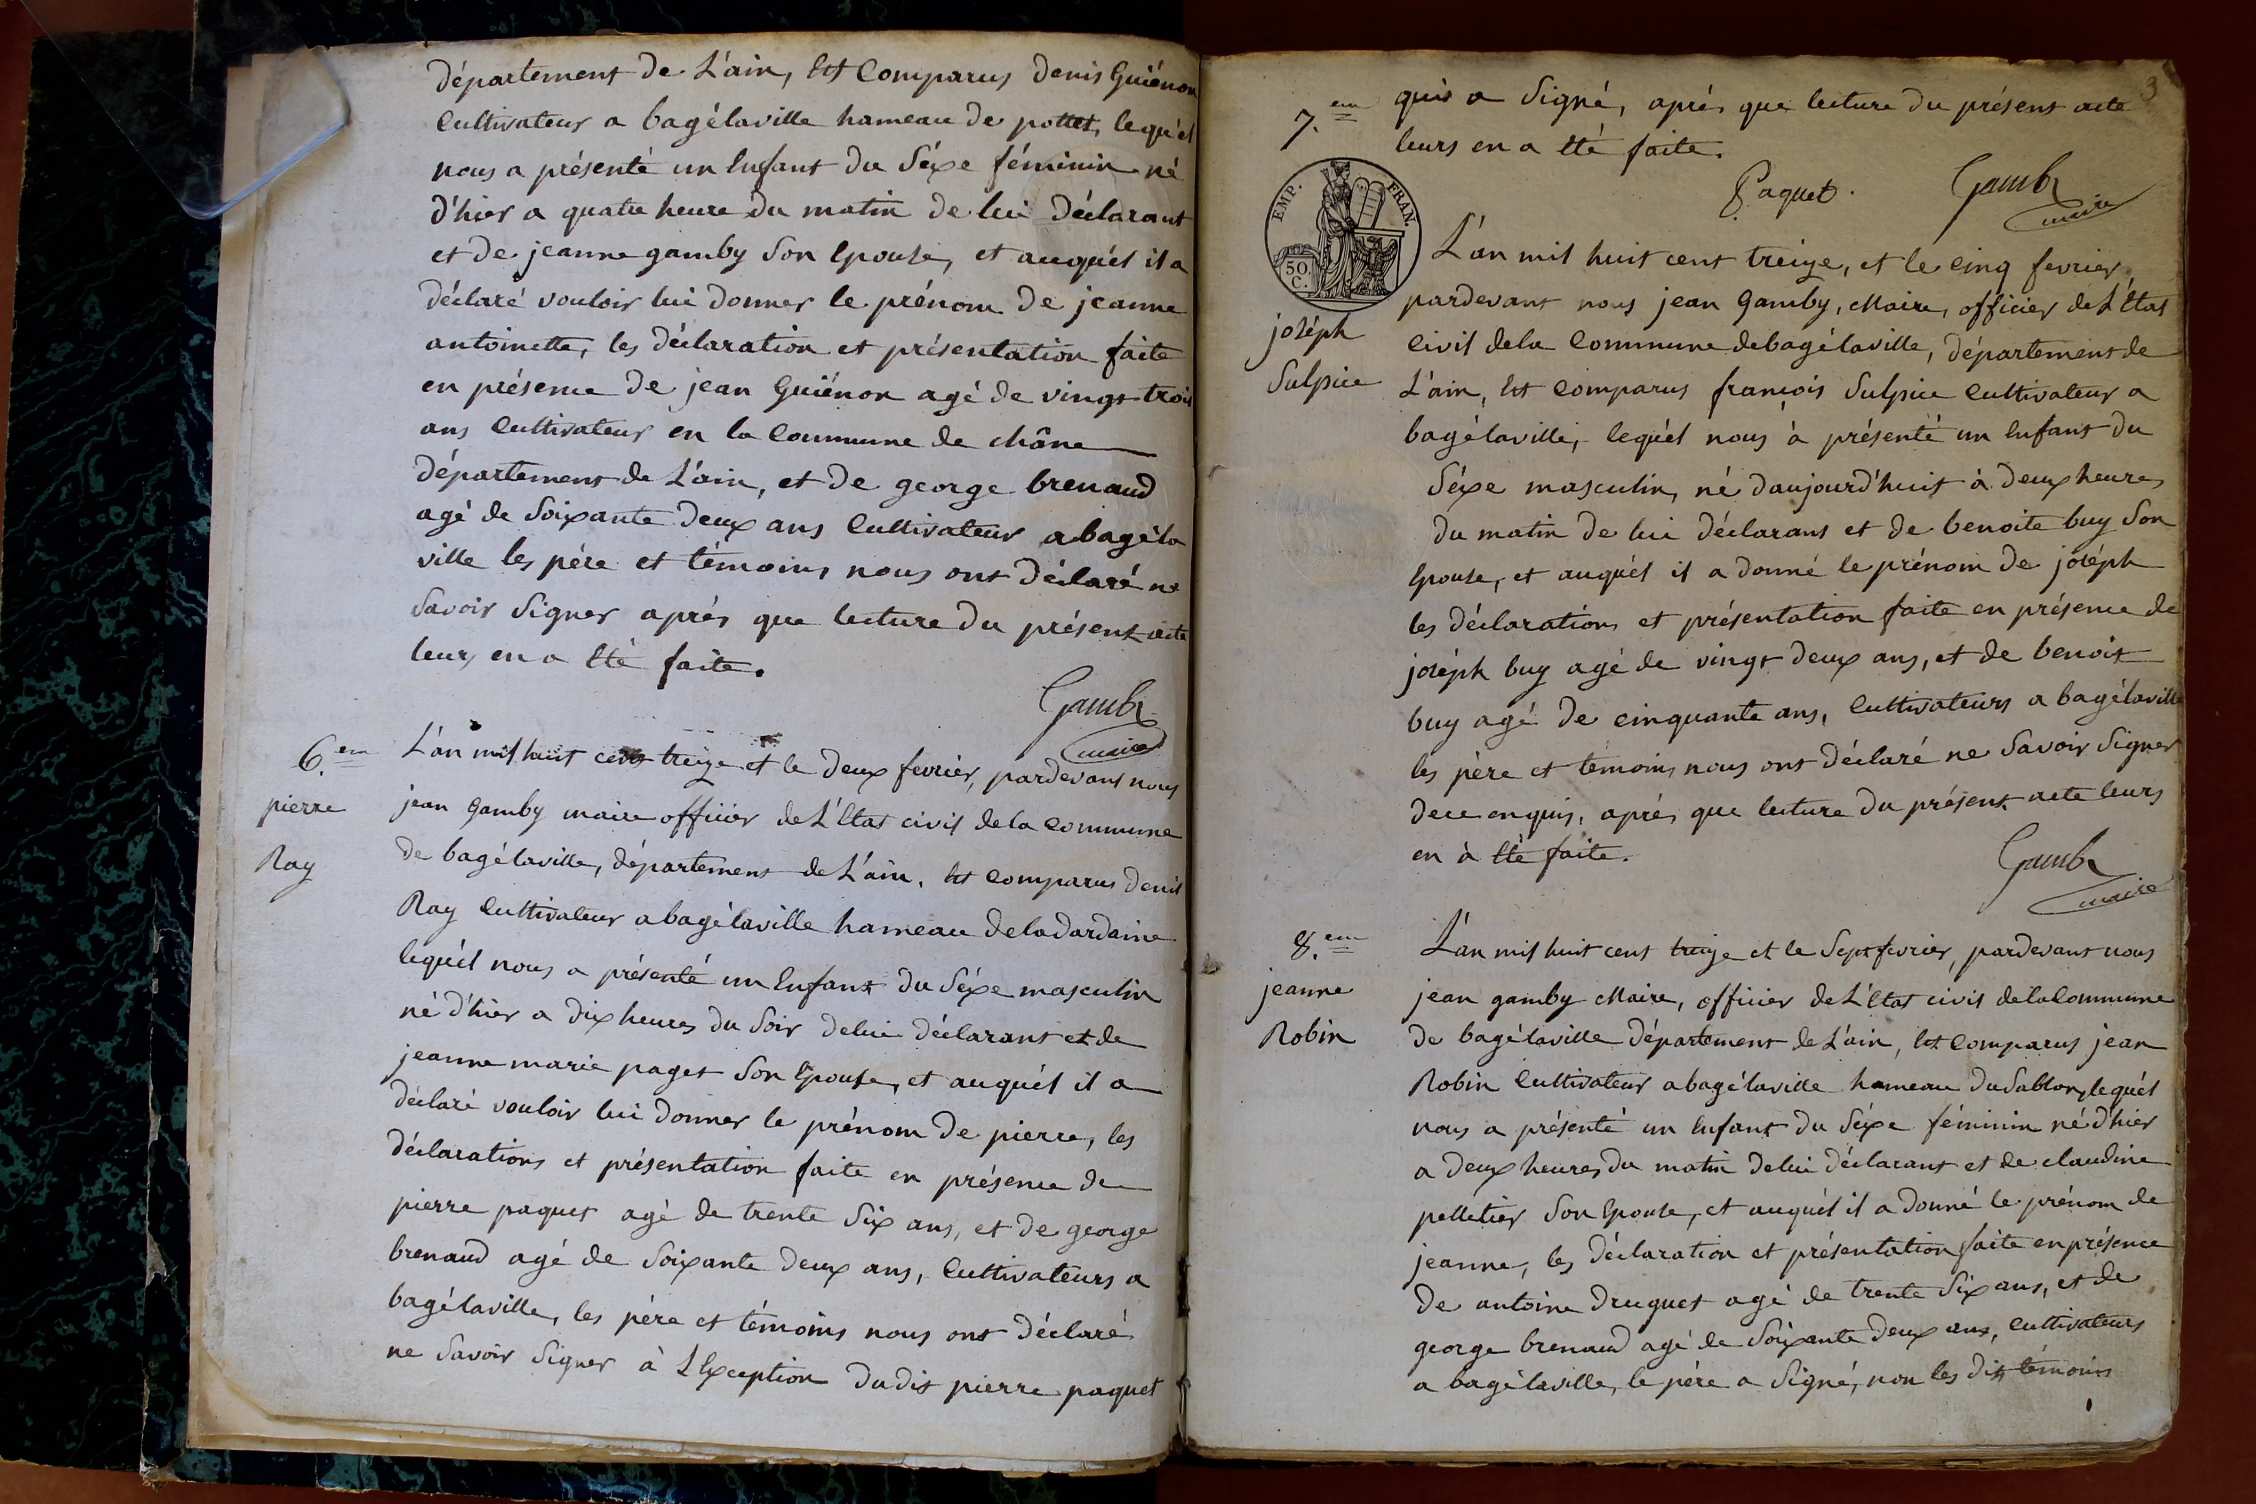 département de L'ain, Est Comparus denis Guiénon
Cultivateur a bagélaville hameau de pottet, lequ'el
nous a présenté un Enfant du Séxe féminin né
d'hier a quatre heure du matin de lui déclarant
et de jeanne gamby Son Epouse, et auquél il a
déclaré vouloir lui donner le prénom de jeanne
antoinette, les déclaration et présentation faite
en présence de jean Guiénon agé de vingt trois
ans Cultivateur en la Commune de châne
département de L'ain, et de george brenaud
agé de Soixante deux ans Cultivateur a bagéla
ville les pére et témoins nous ont déclaré ne
Savoir Signer aprés que lecture du présent acte
leurs en a Eté faite.
Gamby
maire
6.em
pierre
Ray
L'an mil huit cent treize et le deux fevrier, pardevant nous
jean gamby maire officier de L'Etat civil de la commune
de bagélaville, département de L'ain, Est comparus denis
Ray Cultivateur a bagélaville hameau de la dardaine
lequél nous a présenté un Enfant du Séxe masculin
né d'hier a dix heures du Soir de lui déclarant et de
jeanne marie paget Son Epouse, et auquél il a
déclaré vouloir lui donner le prénom de pierre, les
déclarations et présentation faite en présence de
pierre paquet agé de trente Six ans, et de george
brenaud agé de Soixante deux ans, Cultivateurs a
bagélaville, les pére et témoins nous ont déclaré
ne Savoir Signer à L'Exception dudit pierre paquet
3
qui a Signé, aprés que lecture du présent acte
leurs en a Eté faite.
Paquet.
Gamby
maire
7.em
EMP. FRAN.
50. C.
joséph
Sulpice
L'an mil huit cent treize, et le cinq fevrier
pardevant nous jean Gamby, Maire, officier de L'Etat
Civil de la Commune de bagélaville, département de
L'ain, Est Comparus françois Sulpice Cultivateur a
bagélaville, lequél nous à présenté un Enfant du
Séxe masculin, né daujourd'huit à deux heures
du matin de lui déclarant et de benoite buy Son
Epouse, et auquél il a donné le prénom de joséph
les déclarations et présentation faite en présence de
joséph buy agé de vingt deux ans, et de benoit
buy agé de cinquante ans, Cultivateurs a bagélaville
les pére et témoins nous ont déclaré ne Savoir Signer
de ce enquis, aprés que lecture du présent acte leurs
en à Eté faite.
Gamby
maire
8.em
jeanne
Robin
L'an mil huit cent treize et le Sept fevrier, pardevant nous
jean gamby Maire, officier de L'Etat civil de la Commune
de bagélaville département de L'ain, Est Comparus jean
Robin Cultivateur a bagélaville hameau du Sablon, lequél
nous a présenté un Enfant du Séxe féminin né d'hier
a deux heures du matin de lui déclarant et de claudine
pelletier Son Epouse, et auquél il a donné le prénom de
jeanne, les déclaration et présentation faite en présence
de antoine druguet agé de trente Six ans, et de
george brenaud agé de Soixante deux ans, Cultivateurs
a bagélaville, le pére a Signé, non les dits témoins